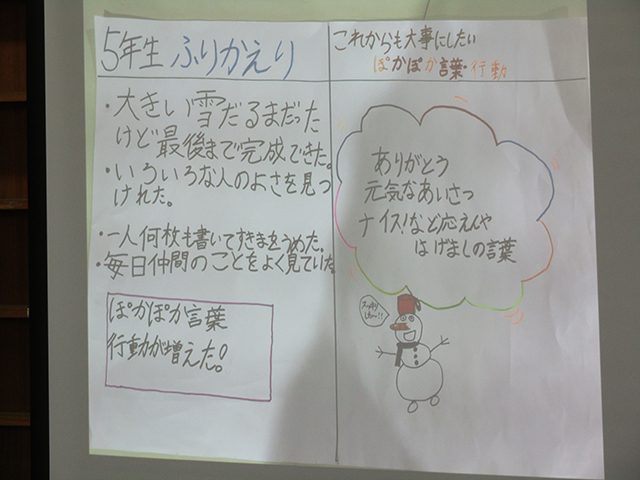 5年生 ふりかえり
・大きい雪だるまだった
けど最後まで完成できた。
・いろいろな人のよさを見つ
けれた。
・一人何枚も書いてすきまをうめた。
・毎日仲間のことをよく見ていた。
ぽかぽか言葉
行動が増えた!
これからも大事にしたい
ぽかぽか言葉・行動
ありがとう
元気なあいさつ
ナイス!など応えんや
はげましの言葉